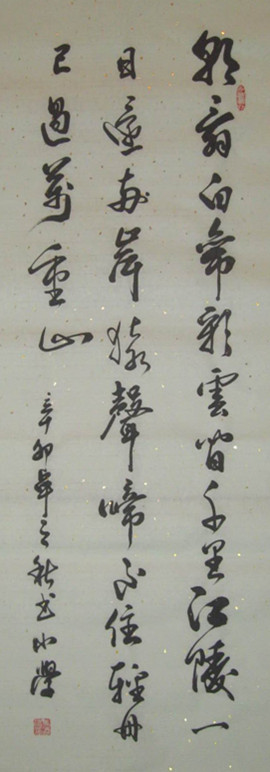 朝辞白帝彩雲間千里江陵一
日還兩岸猿聲啼不住輕舟
已過萬重山
辛卯年之秋书小學